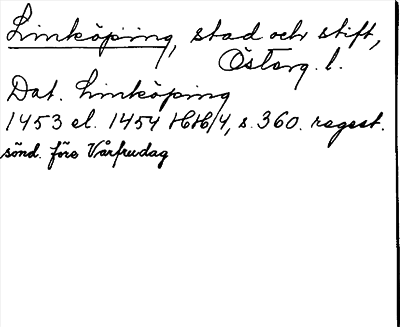 Linköping, stad och stift,
Östерg. l.
Dat. Linköping
1453 el. 1454 HH/4, s. 360. regest.
sönd. före Vårfrudag